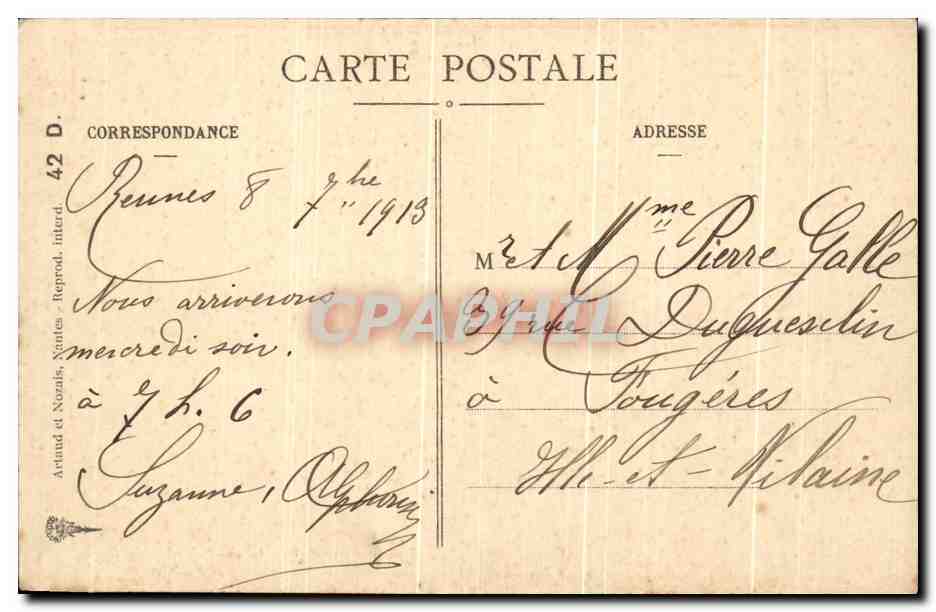 CARTE POSTALE
CORRESPONDANCE
Rennes 8 7bre 1913
Nous arriverons
mercredi soir.
à 7 h. 6
Suzanne, Alphonse
ADRESSE
Mr et Mme Pierre Galle
39 rue Duguesclin
à Fougéres
Ille-et-Vilaine
42 D.
Artaud et Nozais, Nantes - Reprod. interd.
CPAPHIL